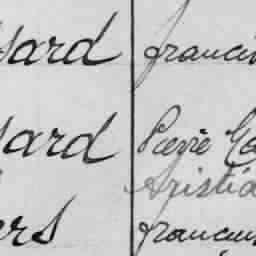 sard francis
sard Pierre Ga
Aristid
ers francis